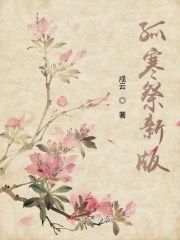 孤寒祭新版
戍云◎著